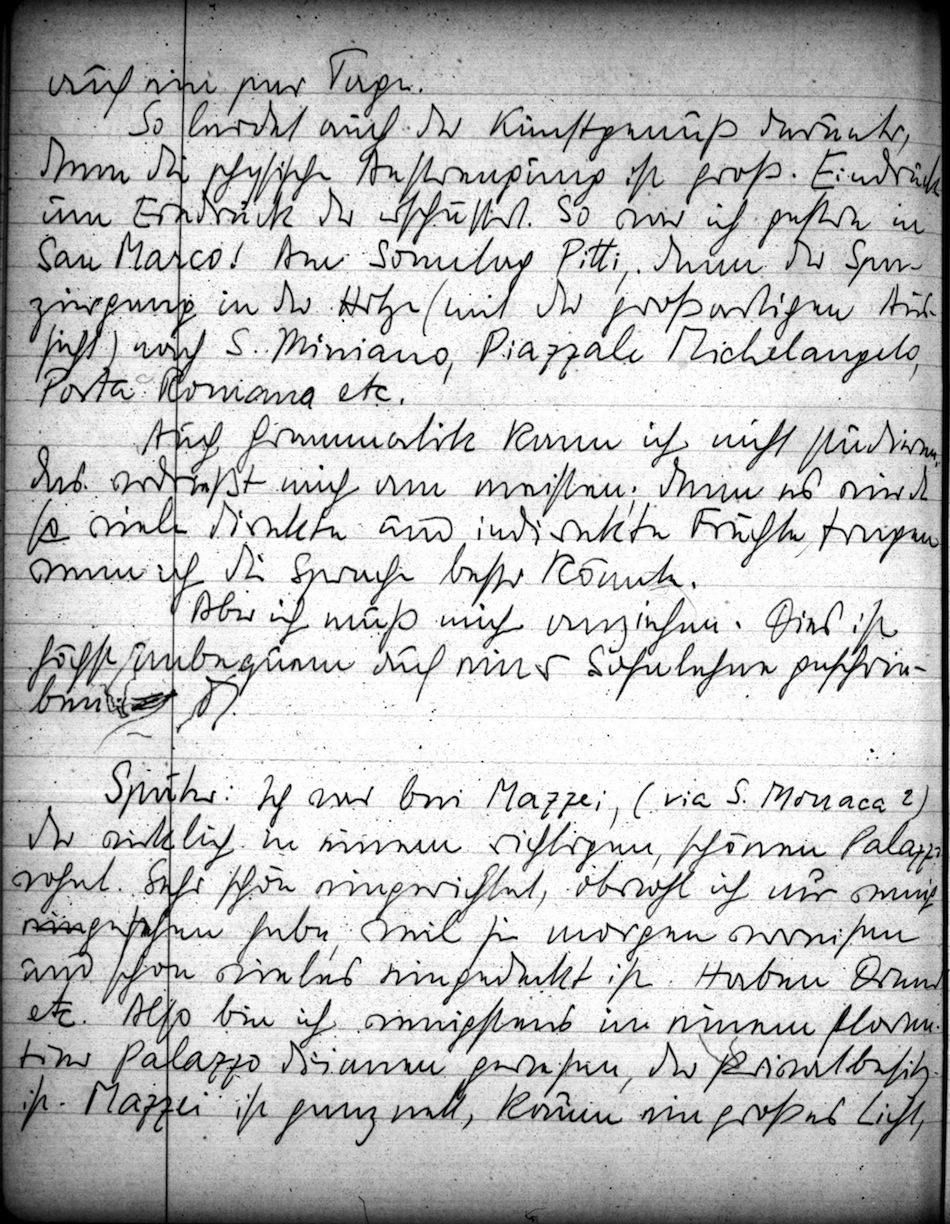 auch ein paar Tage.
So leidet auch der Kunstgenuß darunter,
denn die physische Anstrengung ist groß. Eindruck
um Eindruck der erschüttert. So war ich gestern in
San Marco! Am Sonntag Pitti, dann der Spa-
ziergang in der Hitze (mit der großartigen Aus-
sicht) nach S. Miniano, Piazzale Michelangelo,
Porta Romana etc.
Auch Grammatik kann ich nicht studieren,
das verdrießt mich am meisten; denn es wird
so viele direkte und indirekte Früchte tragen
wenn ich die Sprache besser könnte.
Aber ich muß mich anziehen. Dies ist
höchst unbequem auf einer Sofalehne geschrie-
ben
Später: Ich war bei Mazzei, (via S. Monaca 2)
der wirklich in einem richtigen, schönen Palazzo
wohnt. Sehr schön eingerichtet, obwohl ich nur wenig
gesehen habe, weil sie morgen verreisen
und schon vieles eingedeckt ist. Haben
etc. Also bin ich wenigstens in einem floren-
tiner Palazzo drinnen gewesen, der Privatbesitz
ist. Mazzei ist ganz nett, kaum ein großes Licht,